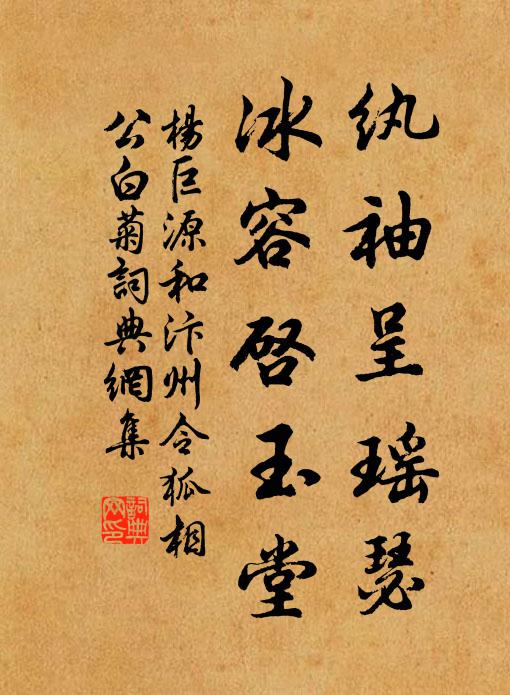 纨袖呈瑶瑟
冰容启玉堂
楊巨源和汴州令狐相
公白菊詞典網集
詞典網印